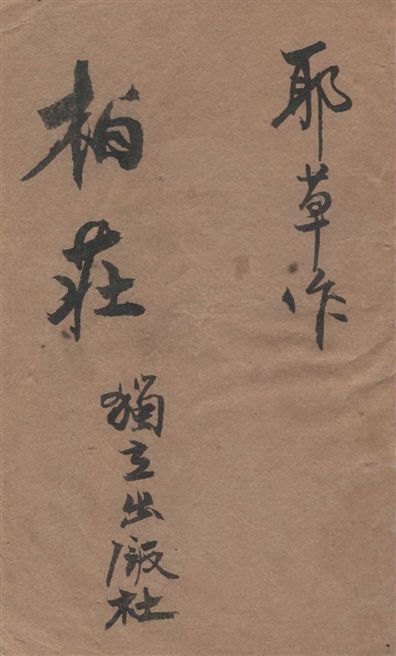 耶草作
柏莊
獨立出版社